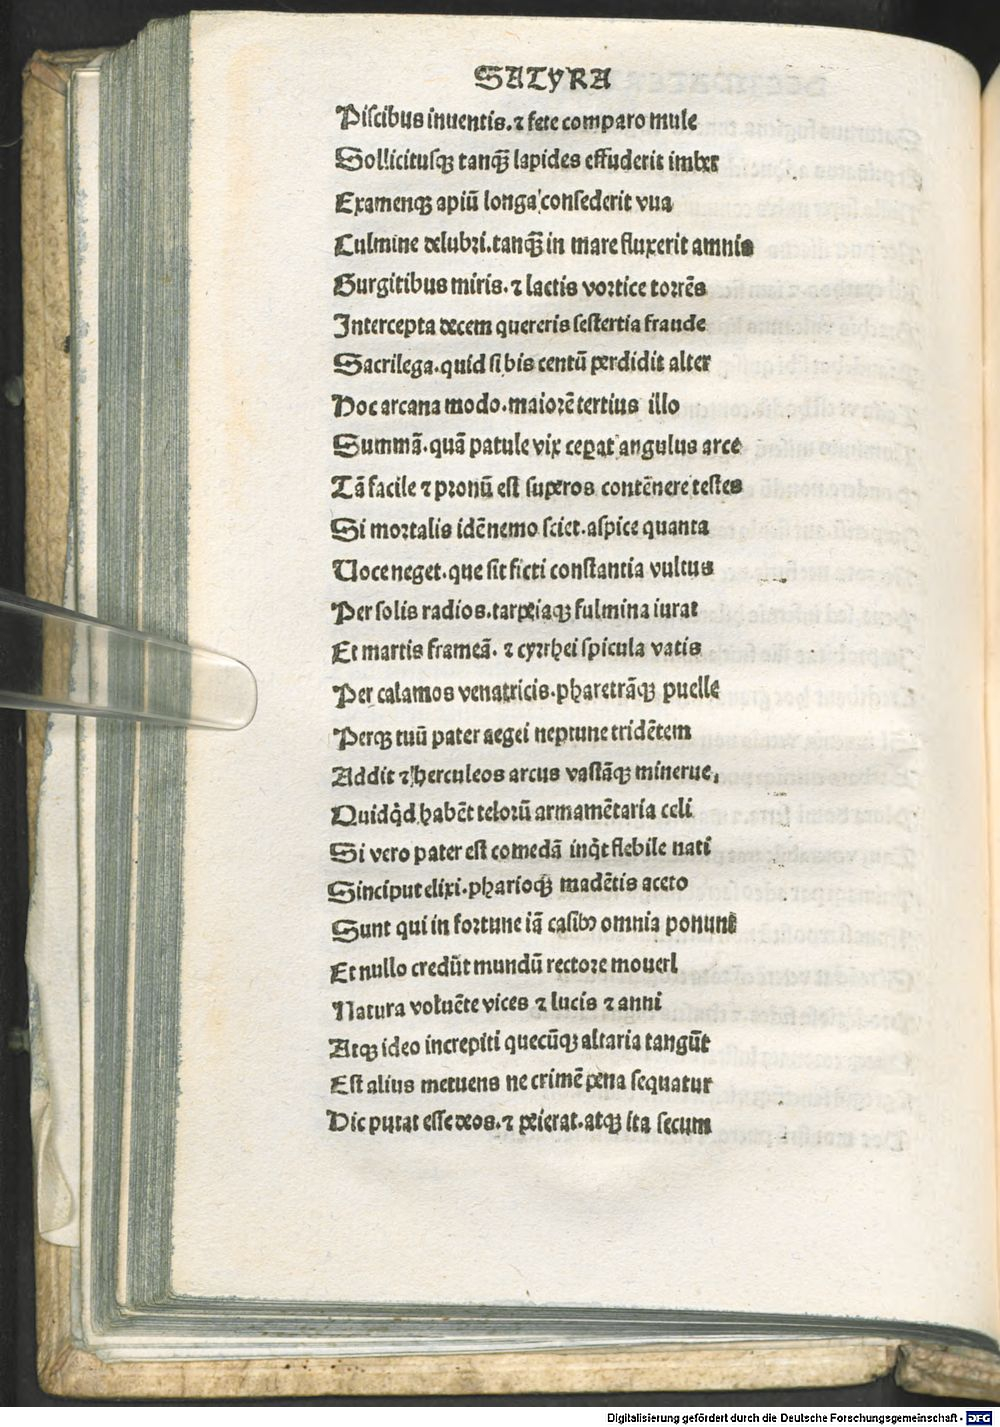 SATYRA
Piscibus inuentis. ⁊ fete comparo mule
Sollicitusqꝫ tanqꝫ̃ lapides effuderit imber
Examenqꝫ apiũ longa consederit vua
Culmine delubri. tanqꝫ̃ in mare fluxerit amnis
Gurgitibus miris. ⁊ lactis vortice torrẽs
Intercepta decem quereris sestertia fraude
Sacrilega. quid si bis centũ perdidit alter
Hoc arcana modo. maiorẽ tertius illo
Summã. quã patule vix ceperat angulus arce
Tã facile ⁊ pronũ est superos contẽnere testes
Si mortalis idẽ nemo sciet. aspice quanta
Uoce neget. que sit ficti constantia vultus
Per solis radios. tarpeiaqꝫ fulmina iurat
Et martis frameã. ⁊ cyrrhei spicula vatis
Per calamos venatricis. pharetrãqꝫ puelle
Perqꝫ tuũ pater aegei neptune tridẽtem
Addit ⁊ herculeos arcus vastãqꝫ minerue,
Quidq̇d habẽt telorũ armamẽtaria celi
Si vero pater est comedã inq̇t flebile nati
Sinciput elixi. pharioqꝫ madẽtis aceto
Sunt qui in fortune iã casibꝰ omnia ponunt
Et nullo credũt mundũ rectore moueri
Natura voluẽte vices ⁊ lucis ⁊ anni
Atqꝫ ideo increpiti quecũqꝫ altaria tangũt
Est alius metuens ne crimẽ pena sequatur
Hic putat esse deos. ⁊ peierat. atqꝫ ita secum
Digitalisierung gefördert durch die Deutsche Forschungsgemeinschaft - DFG